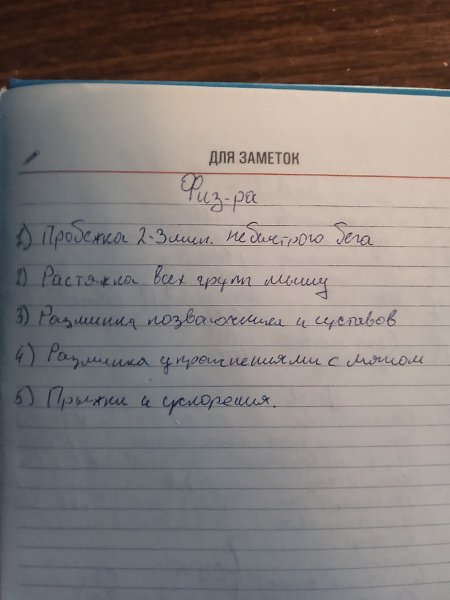 ДЛЯ ЗАМЕТОК
Физ-ра
1) Пробежка 2-3 мин. небыстрого бега
2) Растяжка всех групп мышц
3) Разминка позвоночника и суставов
4) Разминка упражнениями с мячом
5) Прыжки и ускорения.